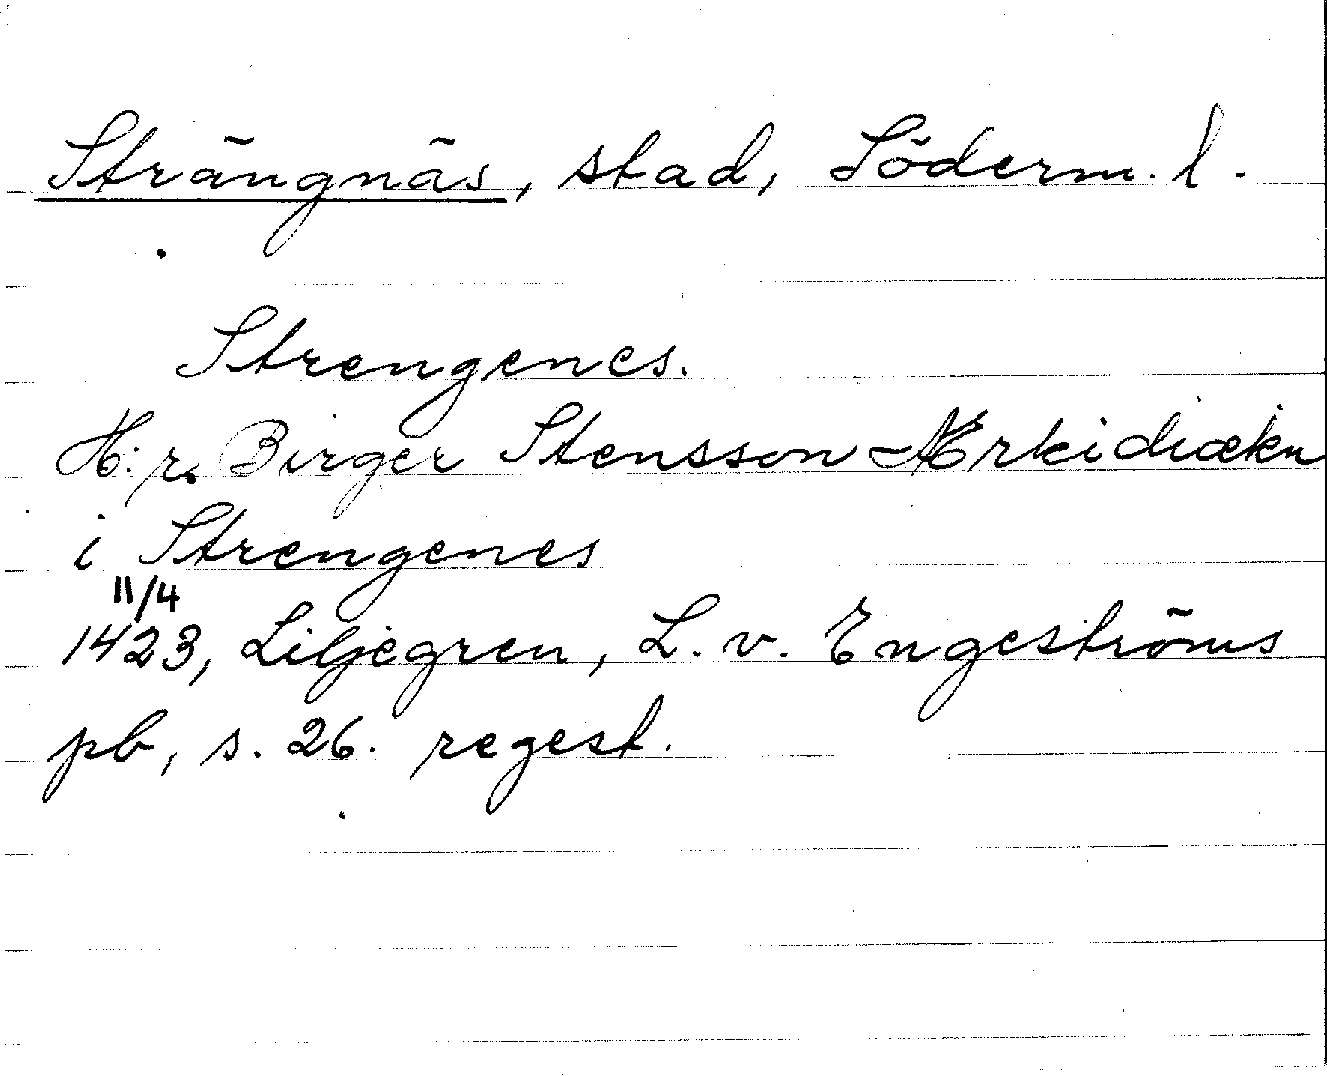 Strängnäs, stad, Söderm. l.
Strengenes.
H:r. Birger Stensson Ærkidiækn
i Strengenes
11/4
1423, Liljegren, L. v. Engeströms
pb, s. 26. regest.